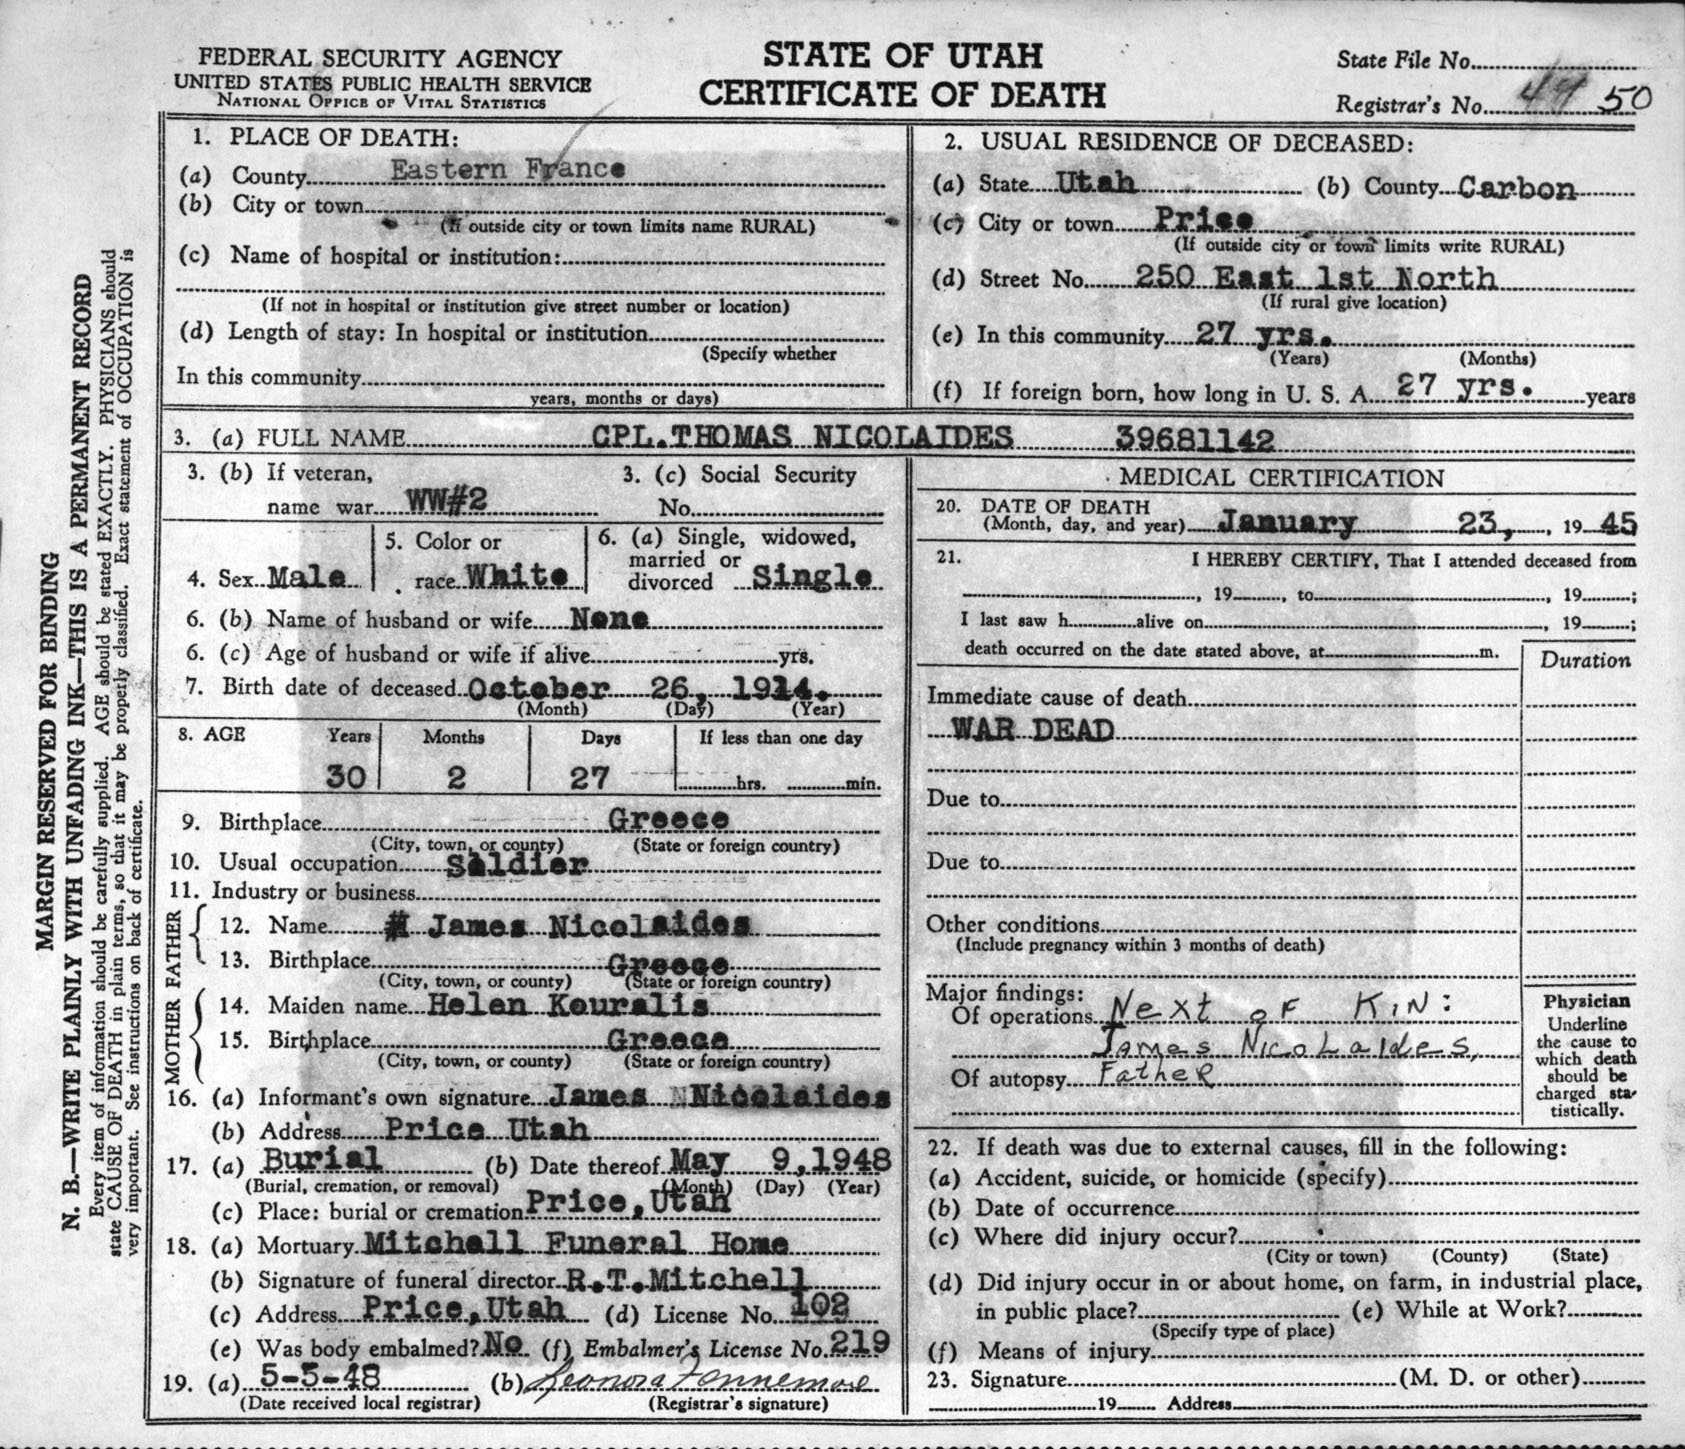 FEDERAL SECURITY AGENCY
UNITED STATES PUBLIC HEALTH SERVICE
NATIONAL OFFICE OF VITAL STATISTICS
STATE OF UTAH
CERTIFICATE OF DEATH
State File No.
Registrar's No. 49 50
MARGIN RESERVED FOR BINDING
N. B.—WRITE PLAINLY WITH UNFADING INK—THIS IS A PERMANENT RECORD
Every item of information should be carefully supplied. AGE should be stated EXACTLY. PHYSICIANS should
state CAUSE OF DEATH in plain terms, so that it may be properly classified. Exact statement of OCCUPATION is
very important. See instructions on back of certificate.
1. PLACE OF DEATH:
(a) County Eastern France
(b) City or town
(If outside city or town limits name RURAL)
(c) Name of hospital or institution:
(If not in hospital or institution give street number or location)
(d) Length of stay: In hospital or institution
(Specify whether
In this community
years, months or days)
2. USUAL RESIDENCE OF DECEASED:
(a) State Utah (b) County Carbon
(c) City or town Price
(If outside city or town limits write RURAL)
(d) Street No. 250 East 1st North
(If rural give location)
(e) In this community 27 yrs.
(Years) (Months)
(f) If foreign born, how long in U. S. A. 27 yrs. years
3. (a) FULL NAME CPL.THOMAS NICOLAIDES 39681142
3. (b) If veteran,
name war WW#2
3. (c) Social Security
No.
4. Sex Male
5. Color or
race White
6. (a) Single, widowed,
married or
divorced Single
6. (b) Name of husband or wife None
6. (c) Age of husband or wife if alive yrs.
7. Birth date of deceased October 26, 1914.
(Month) (Day) (Year)
8. AGE Years Months Days If less than one day
30 2 27 hrs. min.
9. Birthplace Greece
(City, town, or county) (State or foreign country)
10. Usual occupation Soldier
11. Industry or business
FATHER
12. Name James Nicolaides
13. Birthplace Greece
(City, town, or county) (State or foreign country)
MOTHER
14. Maiden name Helen Kouralis
15. Birthplace Greece
(City, town, or county) (State or foreign country)
16. (a) Informant's own signature James Nicolaides
(b) Address Price Utah
17. (a) Burial (b) Date thereof May 9,1948
(Burial, cremation, or removal) (Month) (Day) (Year)
(c) Place: burial or cremation Price,Utah
18. (a) Mortuary Mitchell Funeral Home
(b) Signature of funeral director R.T.Mitchell
(c) Address Price,Utah (d) License No. 102
(e) Was body embalmed? No (f) Embalmer's License No. 219
19. (a) 5-5-48 (b) Leonora Fennemore
(Date received local registrar) (Registrar's signature)
MEDICAL CERTIFICATION
20. DATE OF DEATH
(Month, day, and year) January 23, , 19 45
21. I HEREBY CERTIFY, That I attended deceased from
, 19 , to , 19 ;
I last saw h alive on , 19 ;
death occurred on the date stated above, at m.
Duration
Immediate cause of death
WAR DEAD
Due to
Due to
Other conditions
(Include pregnancy within 3 months of death)
Major findings:
Of operations Next of Kin:
James Nicolaides,
Of autopsy Father
Physician
Underline
the cause to
which death
should be
charged sta-
tistically.
22. If death was due to external causes, fill in the following:
(a) Accident, suicide, or homicide (specify)
(b) Date of occurrence
(c) Where did injury occur?
(City or town) (County) (State)
(d) Did injury occur in or about home, on farm, in industrial place,
in public place? (e) While at Work?
(Specify type of place)
(f) Means of injury
23. Signature (M. D. or other)
19 Address